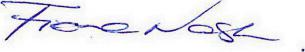 Fiona Nash